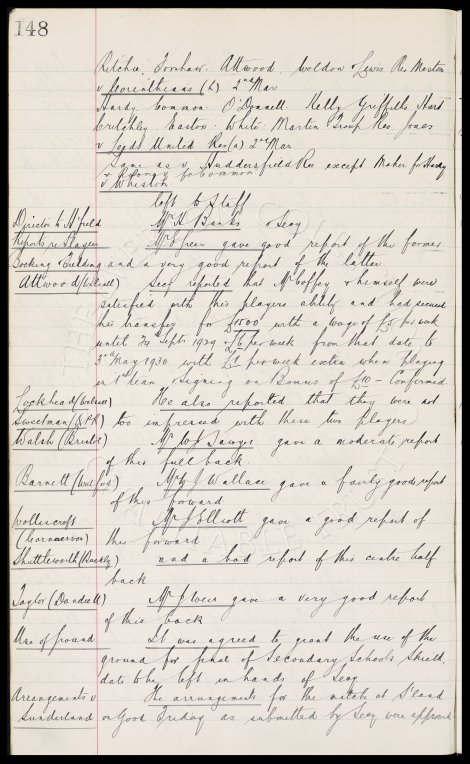 148
Ritchie, Forshaw. Attwood. Weldon & Lewis Res Marton
v Corinthians (h) 2nd Mar
Hardy. Common. O'Donnell. Kelly Griffiths Hart
Critchley. Easton. White. Martin Troup Res Jones
v Leeds United Res (a) 2nd Mar
Same as v. Huddersfield Res except Maher for Hardy
for Common
v Whiston
left to Staff
Director to H'field Mr H Banks & Secy
Reports re Players Mr Green gave good report of the former
Bocking & Fielding and a very good report of the latter
Attwood (Walsall) Secy reported that Mr Coffey & himself were
satisfied with this players ability and had secured
his transfer for £1500 with a wage of £5 per week
until Sept 1929 & £6 per week from that date to
3rd May 1930 with £1 per week extra when playing
in 1st team. Signing on Bonus of £10 - Confirmed
Lockhead (Walsall) He also reported that they were not
Sweetman (QPR) too impressed with these two players
Walsh (Bristol) Mr W J Sawyer gave a moderate report
of this full back
Barnett (Watford) Mr J Wallace gave a fairly good report
of this forward
Wolliscroft Mr J Ellicott gave a good report of
(Caernarvon) this forward
Shuttleworth (Rochdly) and a bad report of this centre half
back
Taylor (Dundee U) Mr J Weir gave a very good report
of this back
Use of ground It was agreed to grant the use of the
ground for final of Secondary Schools Shield.
date to be left in hands of Secy
Arrangements v The arrangements for the match at S'land
Sunderland on Good Friday as submitted by Secy were approved